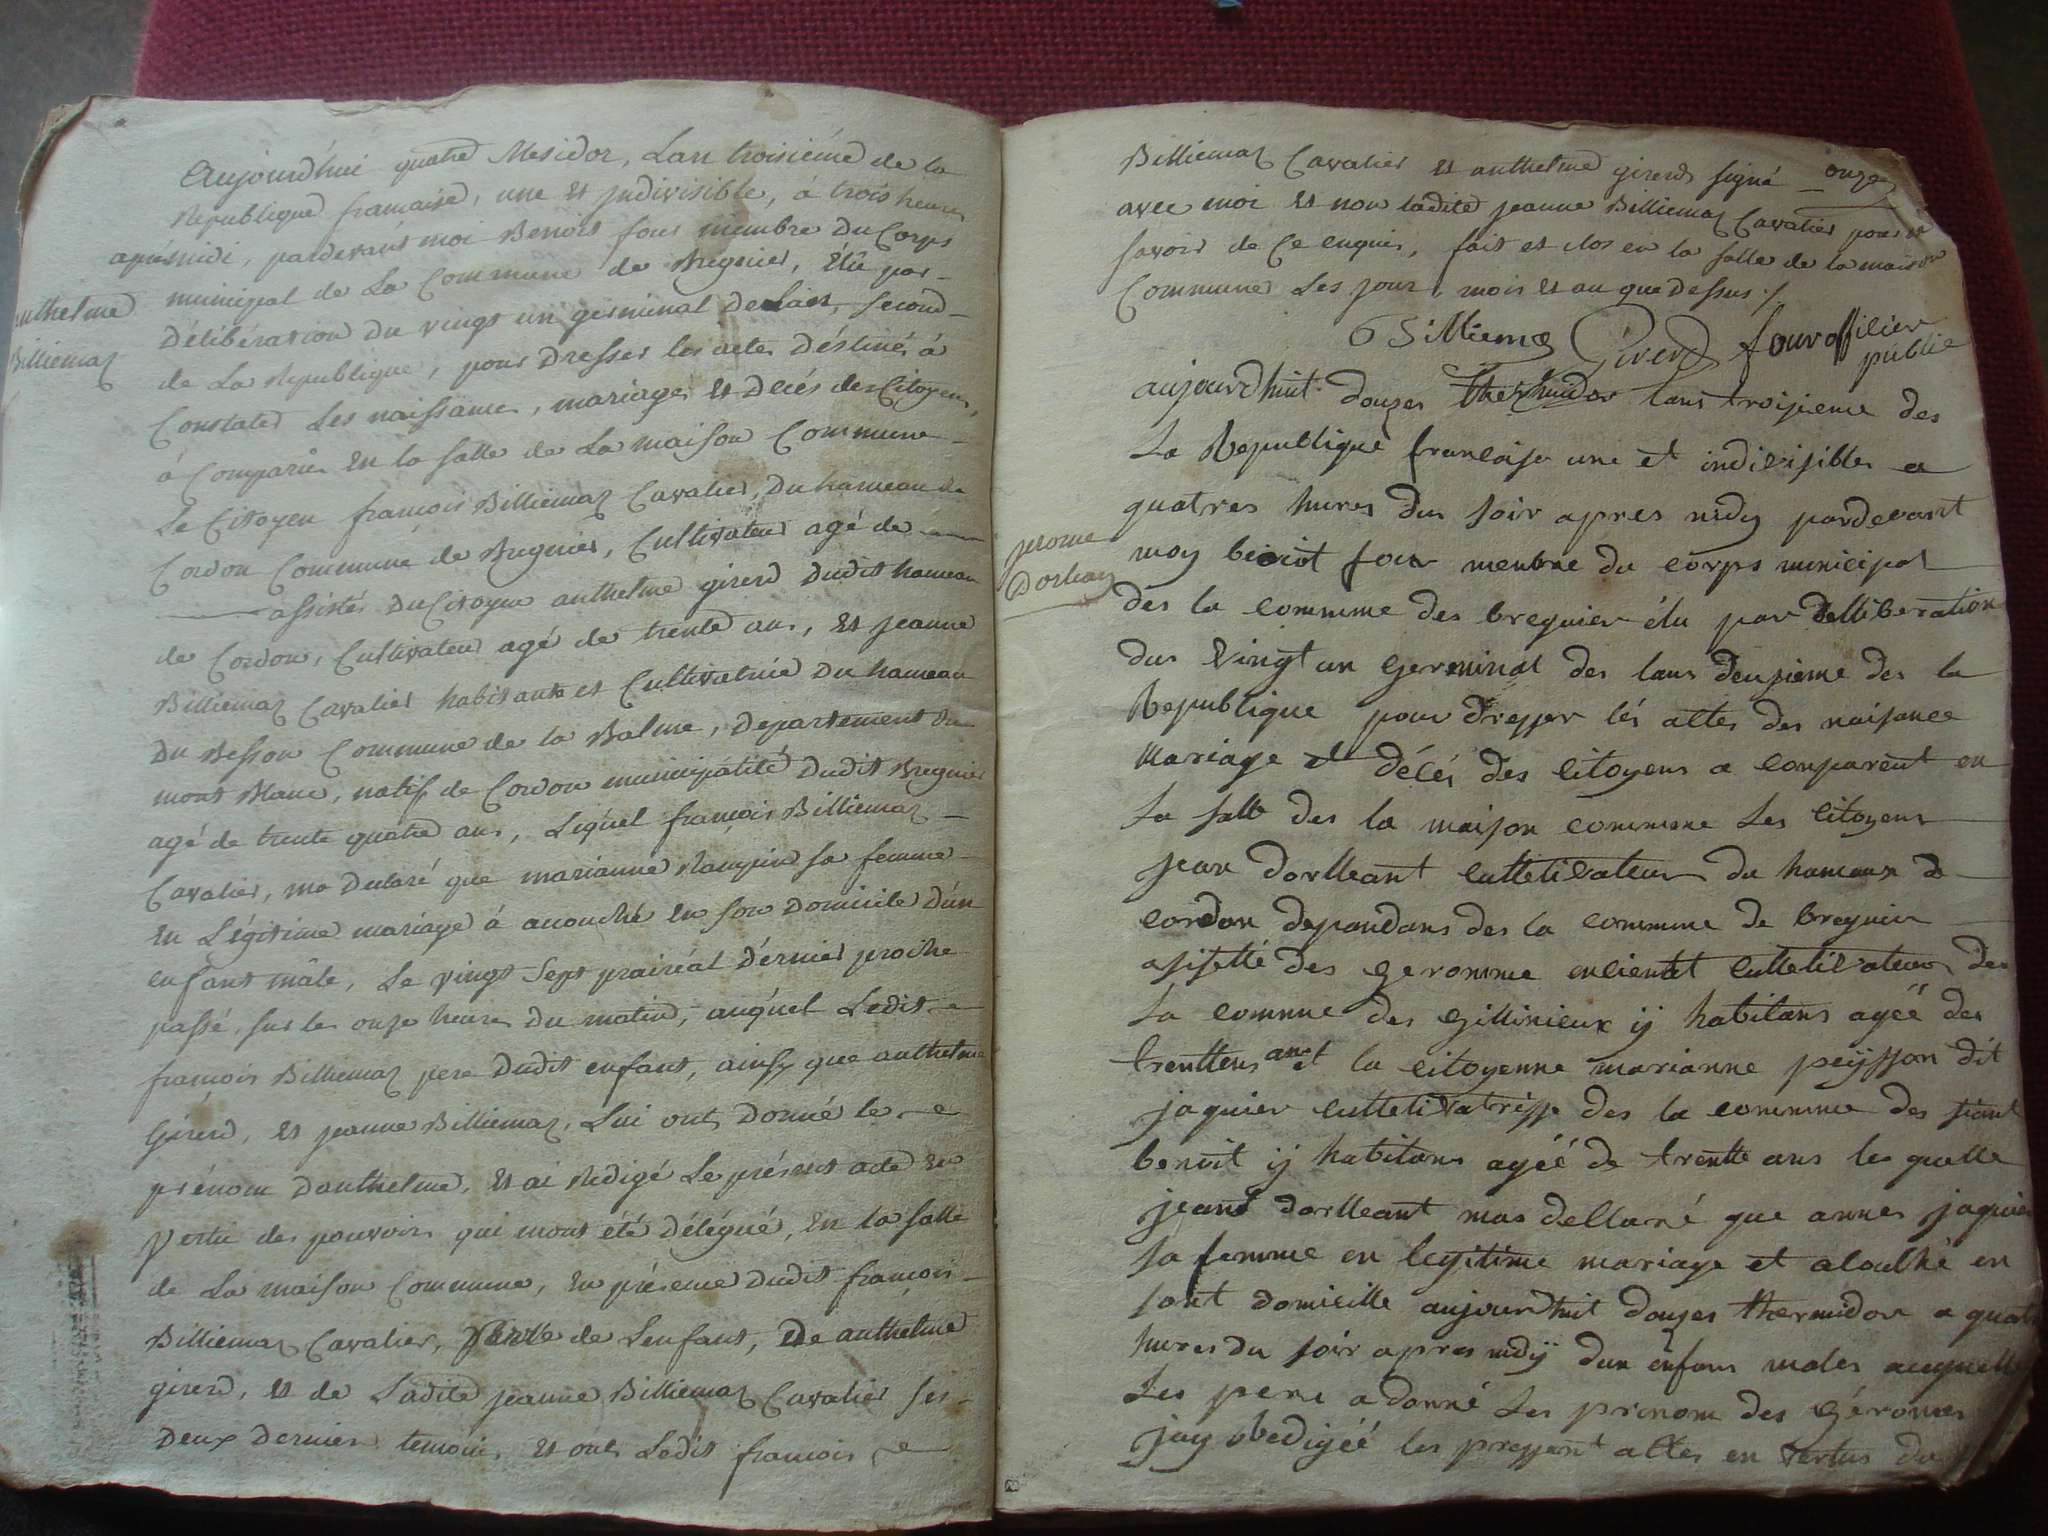 Aujourd'hui quatre Mesidor, Lan troisiéme de la
Republique francaise, une et jndivisible, à trois heures
aprésmidi, pardevant moi Benoit four membre du Corps
municipal de La Commune de Bregnier, élû par
anthelme
Billiemaz
Délibération du vingt un germinal de Lan second
de La Republique, pour Dresser les actes Déstinés à
Constater Les naissances, mariages et Decés des Citoyens,
à Comparu En la salle de La maison Commune
Le Citoyen françois Billiemaz Cavalier, Du hameau de
Cordon Commune de Bregnier, Cultivateur agé de
assisté Du Citoyen anthelme girerd Dudit hameau
de Cordon, Cultivateur agé de trente ans, et jeanne
Billiemaz Cavalier habitante et Cultivatrice Du hameau
Du Besson Commune de la Balme, Departement du
mont Blanc, natif de Cordon municipalité Dudit Bregnier
agé de trente quatre ans, Lequel françois Billiemaz
Cavalier, ma Declaré que marianne sa femme
En Légitime mariage à acouché En son Domicile D'un
enfant mâle, Le vingt Sept prairéal Dérnier proche
passé, sur les onze heures Du matin, auquel Ledit
francois Billiemaz pere Dudit enfant, ainsy que anthelme
Girerd, et jeanne Billiemaz, Lui ont Donné le
prénom Danthelme, et ai Redigé Le présent acte En
Vertu des pouvoirs qui mont été Délégué, En la salle
de La maison Commune, En présence Dudit françois
Billiemaz Cavalier, de Lenfant, De anthelme
girerd, et de Ladite jeanne Billiemaz Cavalier ses
Deux Dernier temoins, et ont Ledit francois
Billiemaz Cavalier et anthelme girerd signé onze
avec moi et non ladite jeanne Billiemaz Cavalier pour
savoir de Ce enquis, fait et clos en la salle de la maison
Commune Les jour, mois et an que Dessus ./.
Billiemaz Girerd four officier
public
aujourdhuit douzes thermidor lans troisieme des
La Republique francaise une et indivisibles a
quatres hures dus soir apres midy pardevant
jerome
Dorlean
moy benoit four menbre du corps municipal
des la commune des bregnier élu par delliberation
dus vingt un germinal des lans deuzieme des la
Republique pour dresser lés attes des naisance
Mariage et décés des citoyens a conparent en
La salle des la maison commune Les citoyens
jean dorlleant cultelivateur du hameux de
cordon depandans des la commune de bregnier
asisetté des geromme cultelivateur des
La commne des gillinieux ij habitans ageé des
trenttens ans et la citoyenne marianne peysson dit
jaquier cultelivatrisse des la commune des siant
benoit ij habitans ageé de trentte ans le quelle
jeans dorlleant mas dellaré que annes jaquier
sa femme en legitime mariage et acouthé en
sont domicille aujourdhuit douzes thermidor a quatre
hures du soir apres midÿ dun enfans males auquelle
Les pere a donné Les prenom des géromes
jay redigéé les pressent attes en vertus des